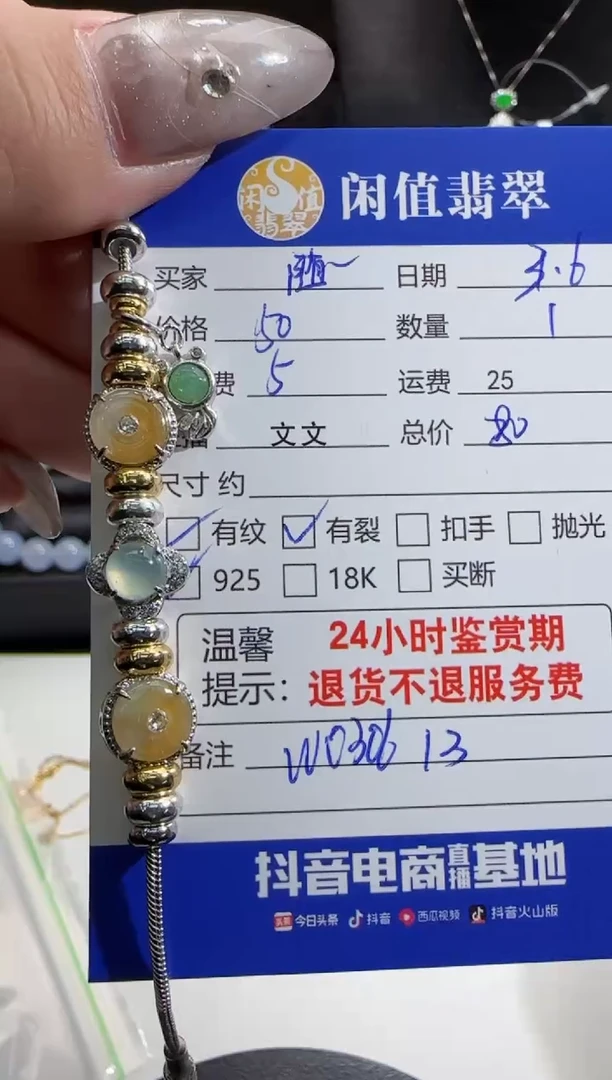 闲值翡翠
闲值翡翠
买家 日期 3.6
价格 50 数量 1
费 5 运费 25
文文 总价 80
尺寸 约
有纹 有裂 扣手 抛光
925 18K 买断
温馨 24小时鉴赏期
提示: 退货不退服务费
备注 W0306 13
抖音电商直播基地
头条 今日头条 抖音 西瓜视频 抖音火山版